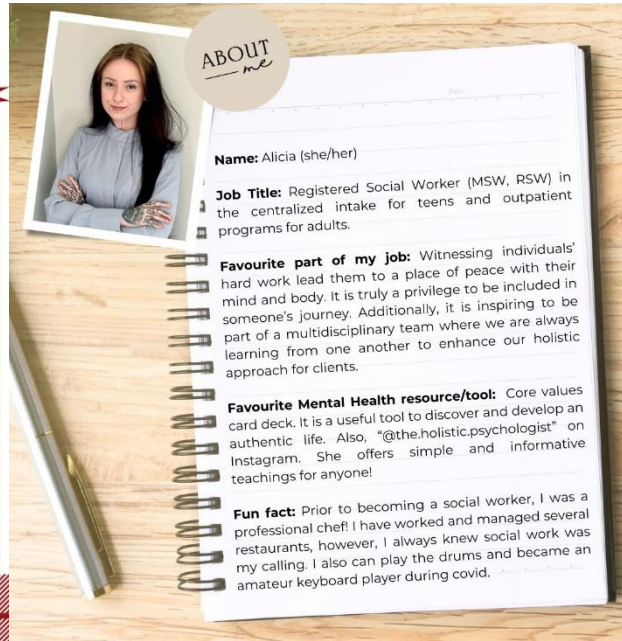 ABOUT
me
Name: Alicia (she/her)
Job Title: Registered Social Worker (MSW, RSW) in
the centralized intake for teens and outpatient
programs for adults.
Favourite part of my job: Witnessing individuals'
hard work lead them to a place of peace with their
mind and body. It is truly a privilege to be included in
someone's journey. Additionally, it is inspiring to be
part of a multidisciplinary team where we are always
learning from one another to enhance our holistic
approach for clients.
Favourite Mental Health resource/tool: Core values
card deck. It is a useful tool to discover and develop an
authentic life. Also, "@the.holistic.psychologist" on
Instagram. She offers simple and informative
teachings for anyone!
Fun fact: Prior to becoming a social worker, I was a
professional chef! I have worked and managed several
restaurants, however, I always knew social work was
my calling. I also can play the drums and became an
amateur keyboard player during covid.